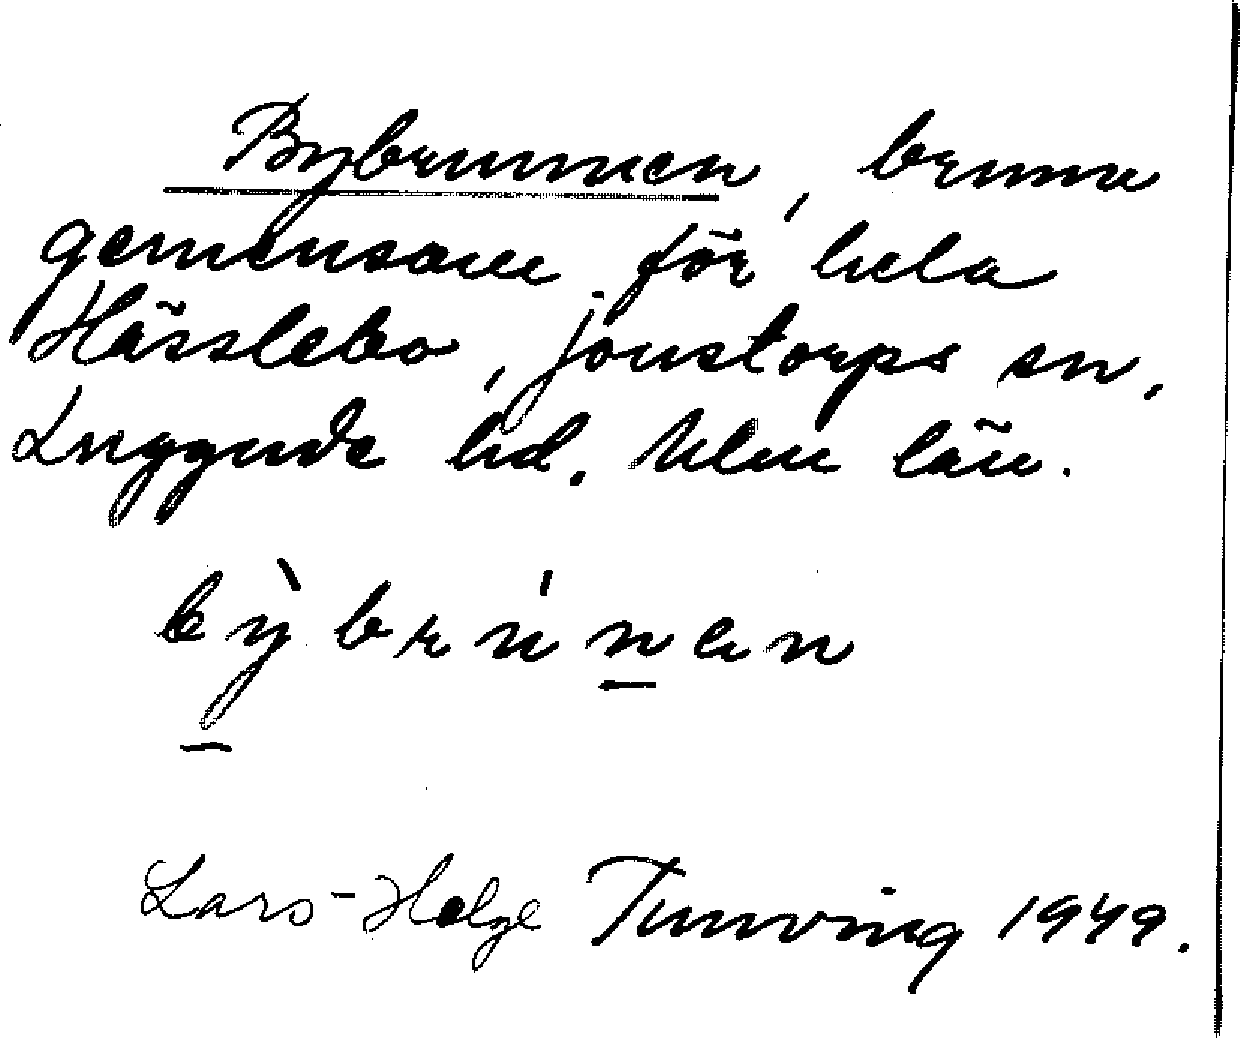 Bybrunnen, brunn
gemensam för hela
Hässlebo, Jonstorps sn,
Luggude hd. Mlm län.
bỳbrúnen
Lars-Helge Tunving 1949.